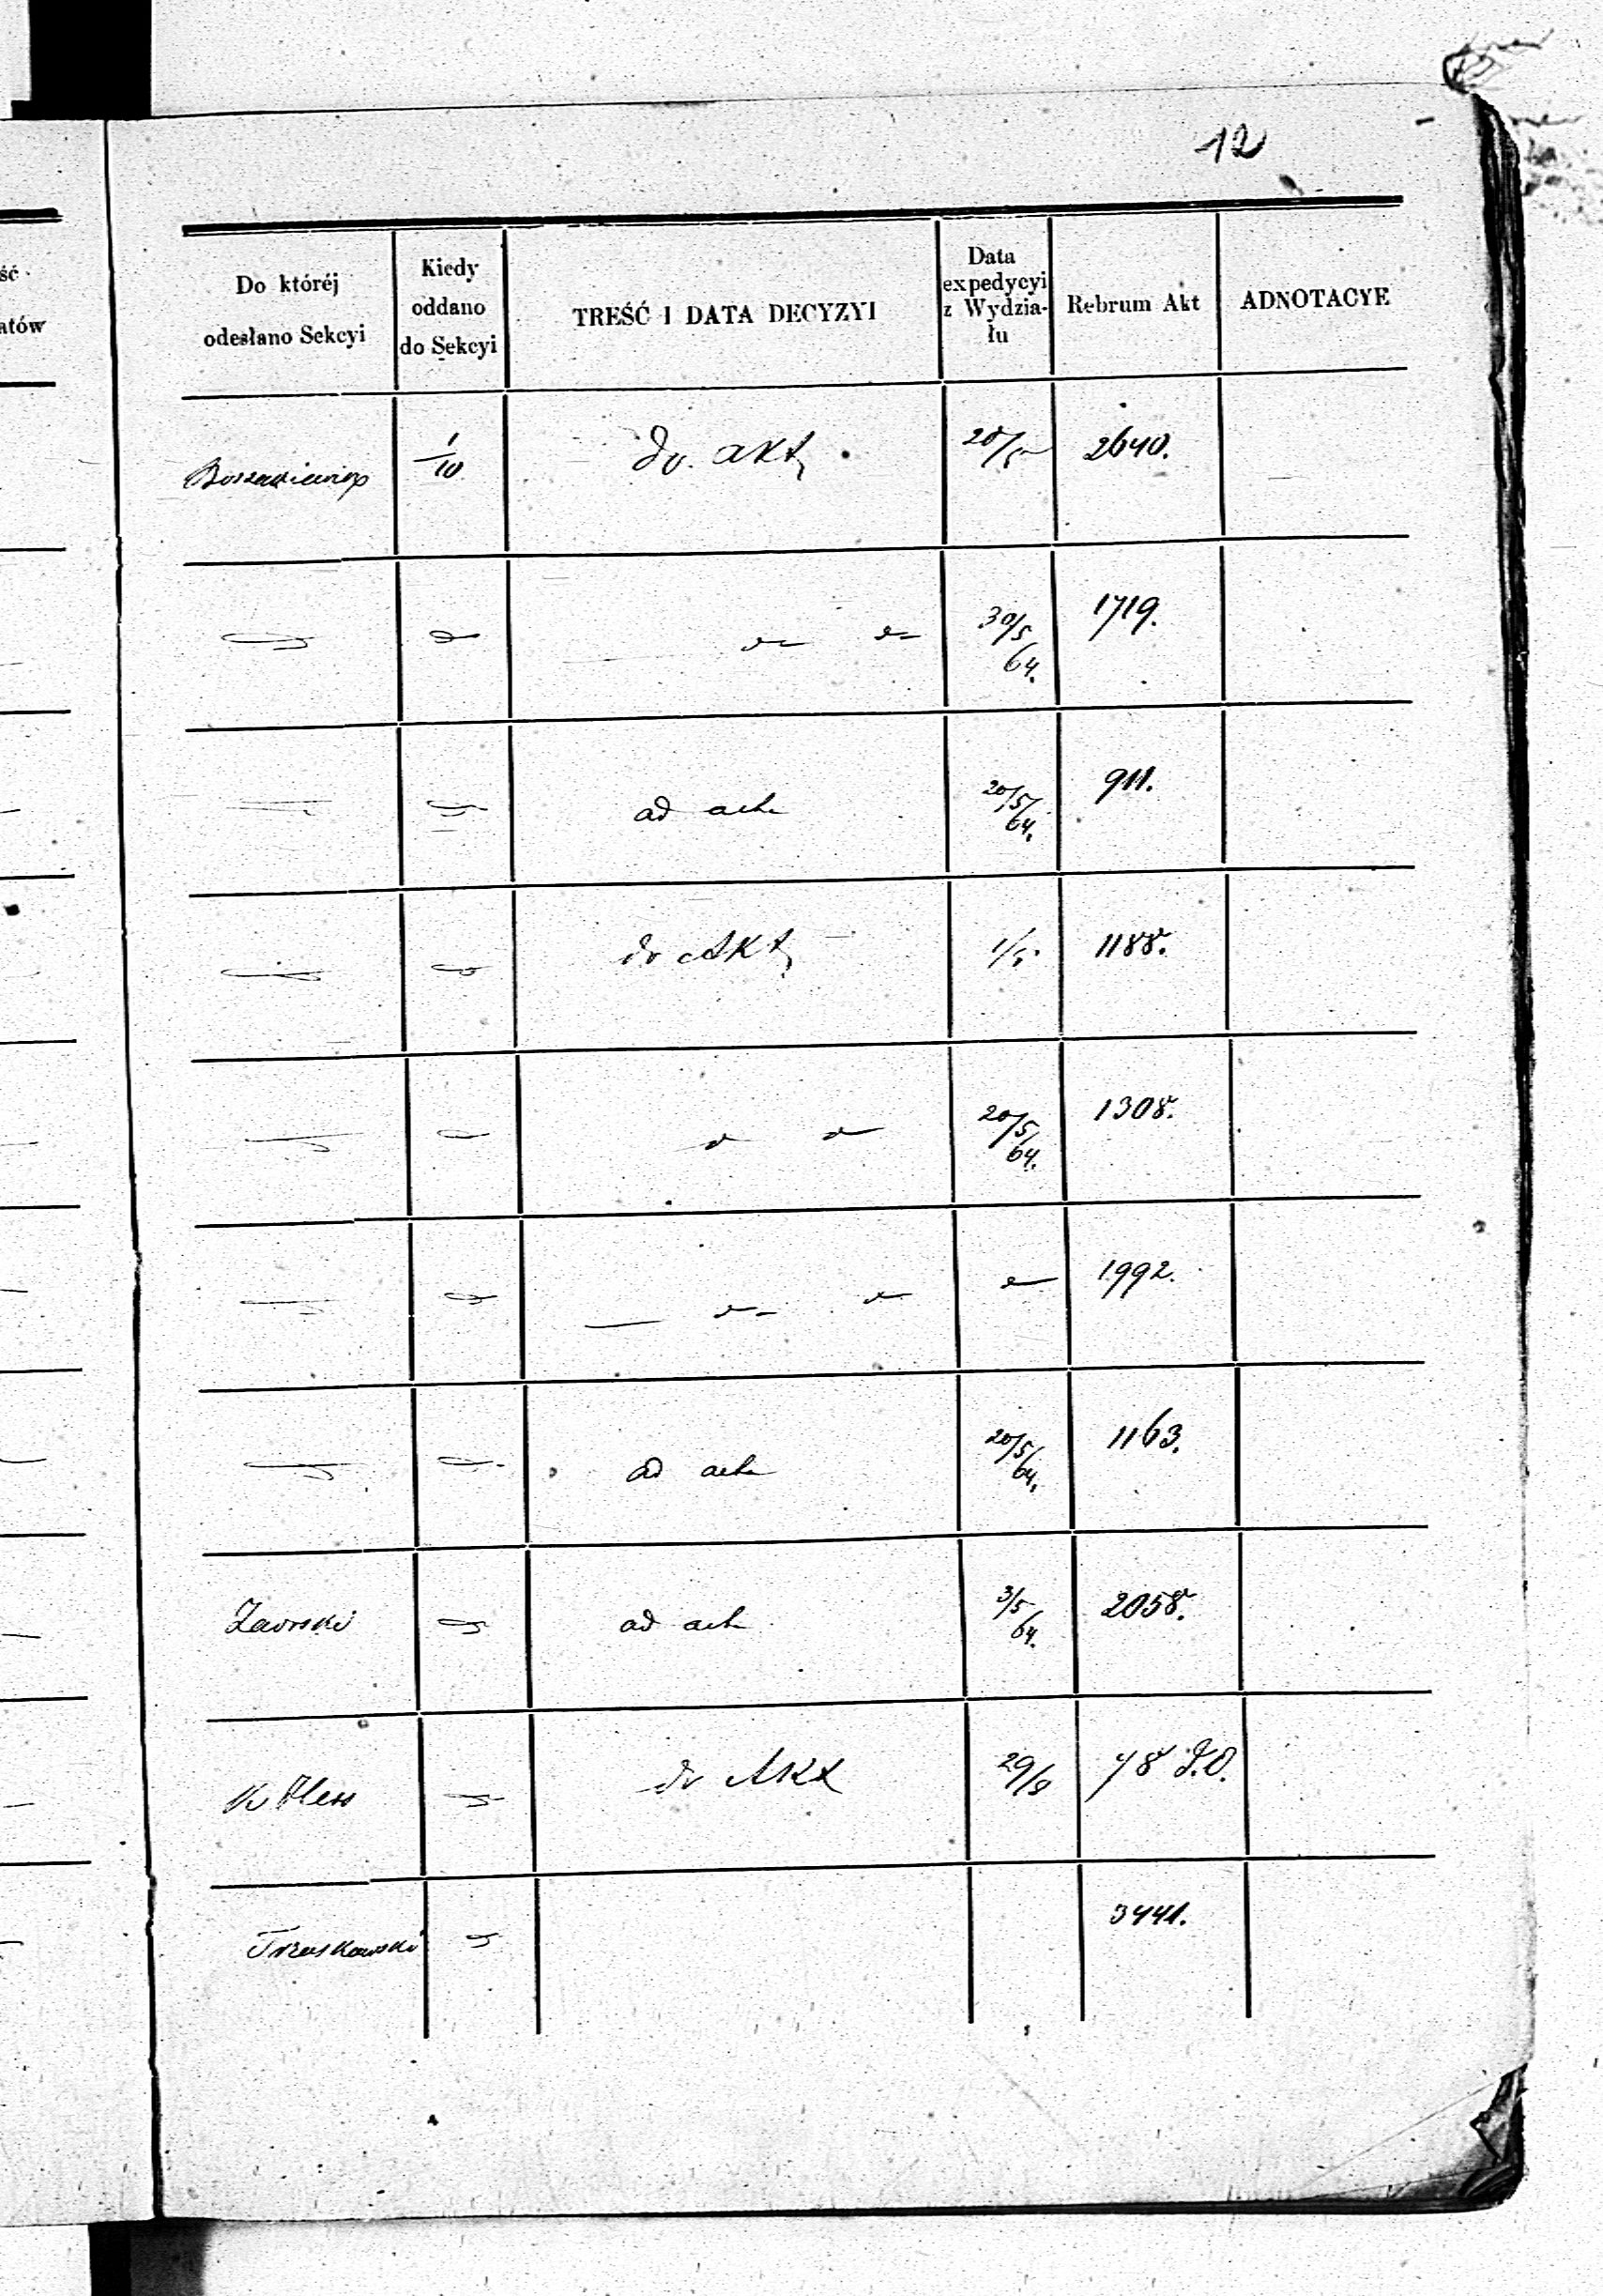 12
ść
atów
Do któréj
odesłano Sekcyi
Kiedy
oddano
do Sekcyi
TREŚĆ I DATA DECYZYI
Data
expedycyi
z Wydzia-
łu
Rebrum Akt
ADNOTACYE
1/10 do akt 2640.
30/5 64. 1719.
ad acta 20/5 64. 911.
do Akt 1/5 1188.
20/5 64. 1308.
1992.
ad acta 20/5 64. 1163.
Zaorski ad acta 3/5 64. 2058.
do Akt 29/8 78
Trzaskowski 3441.